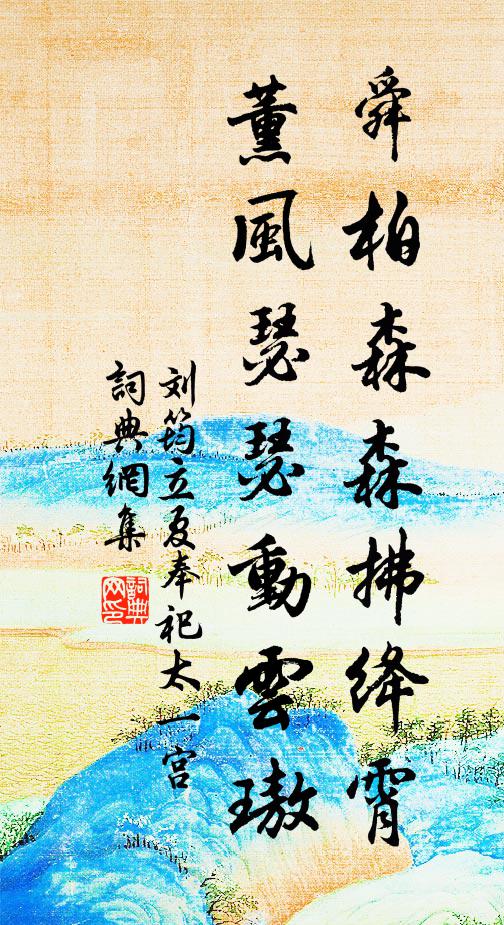 舜柏森森拂绛霄
薰風瑟瑟動雲璈
刘筠立夏奉祀太一宫
詞典網集
詞典网印